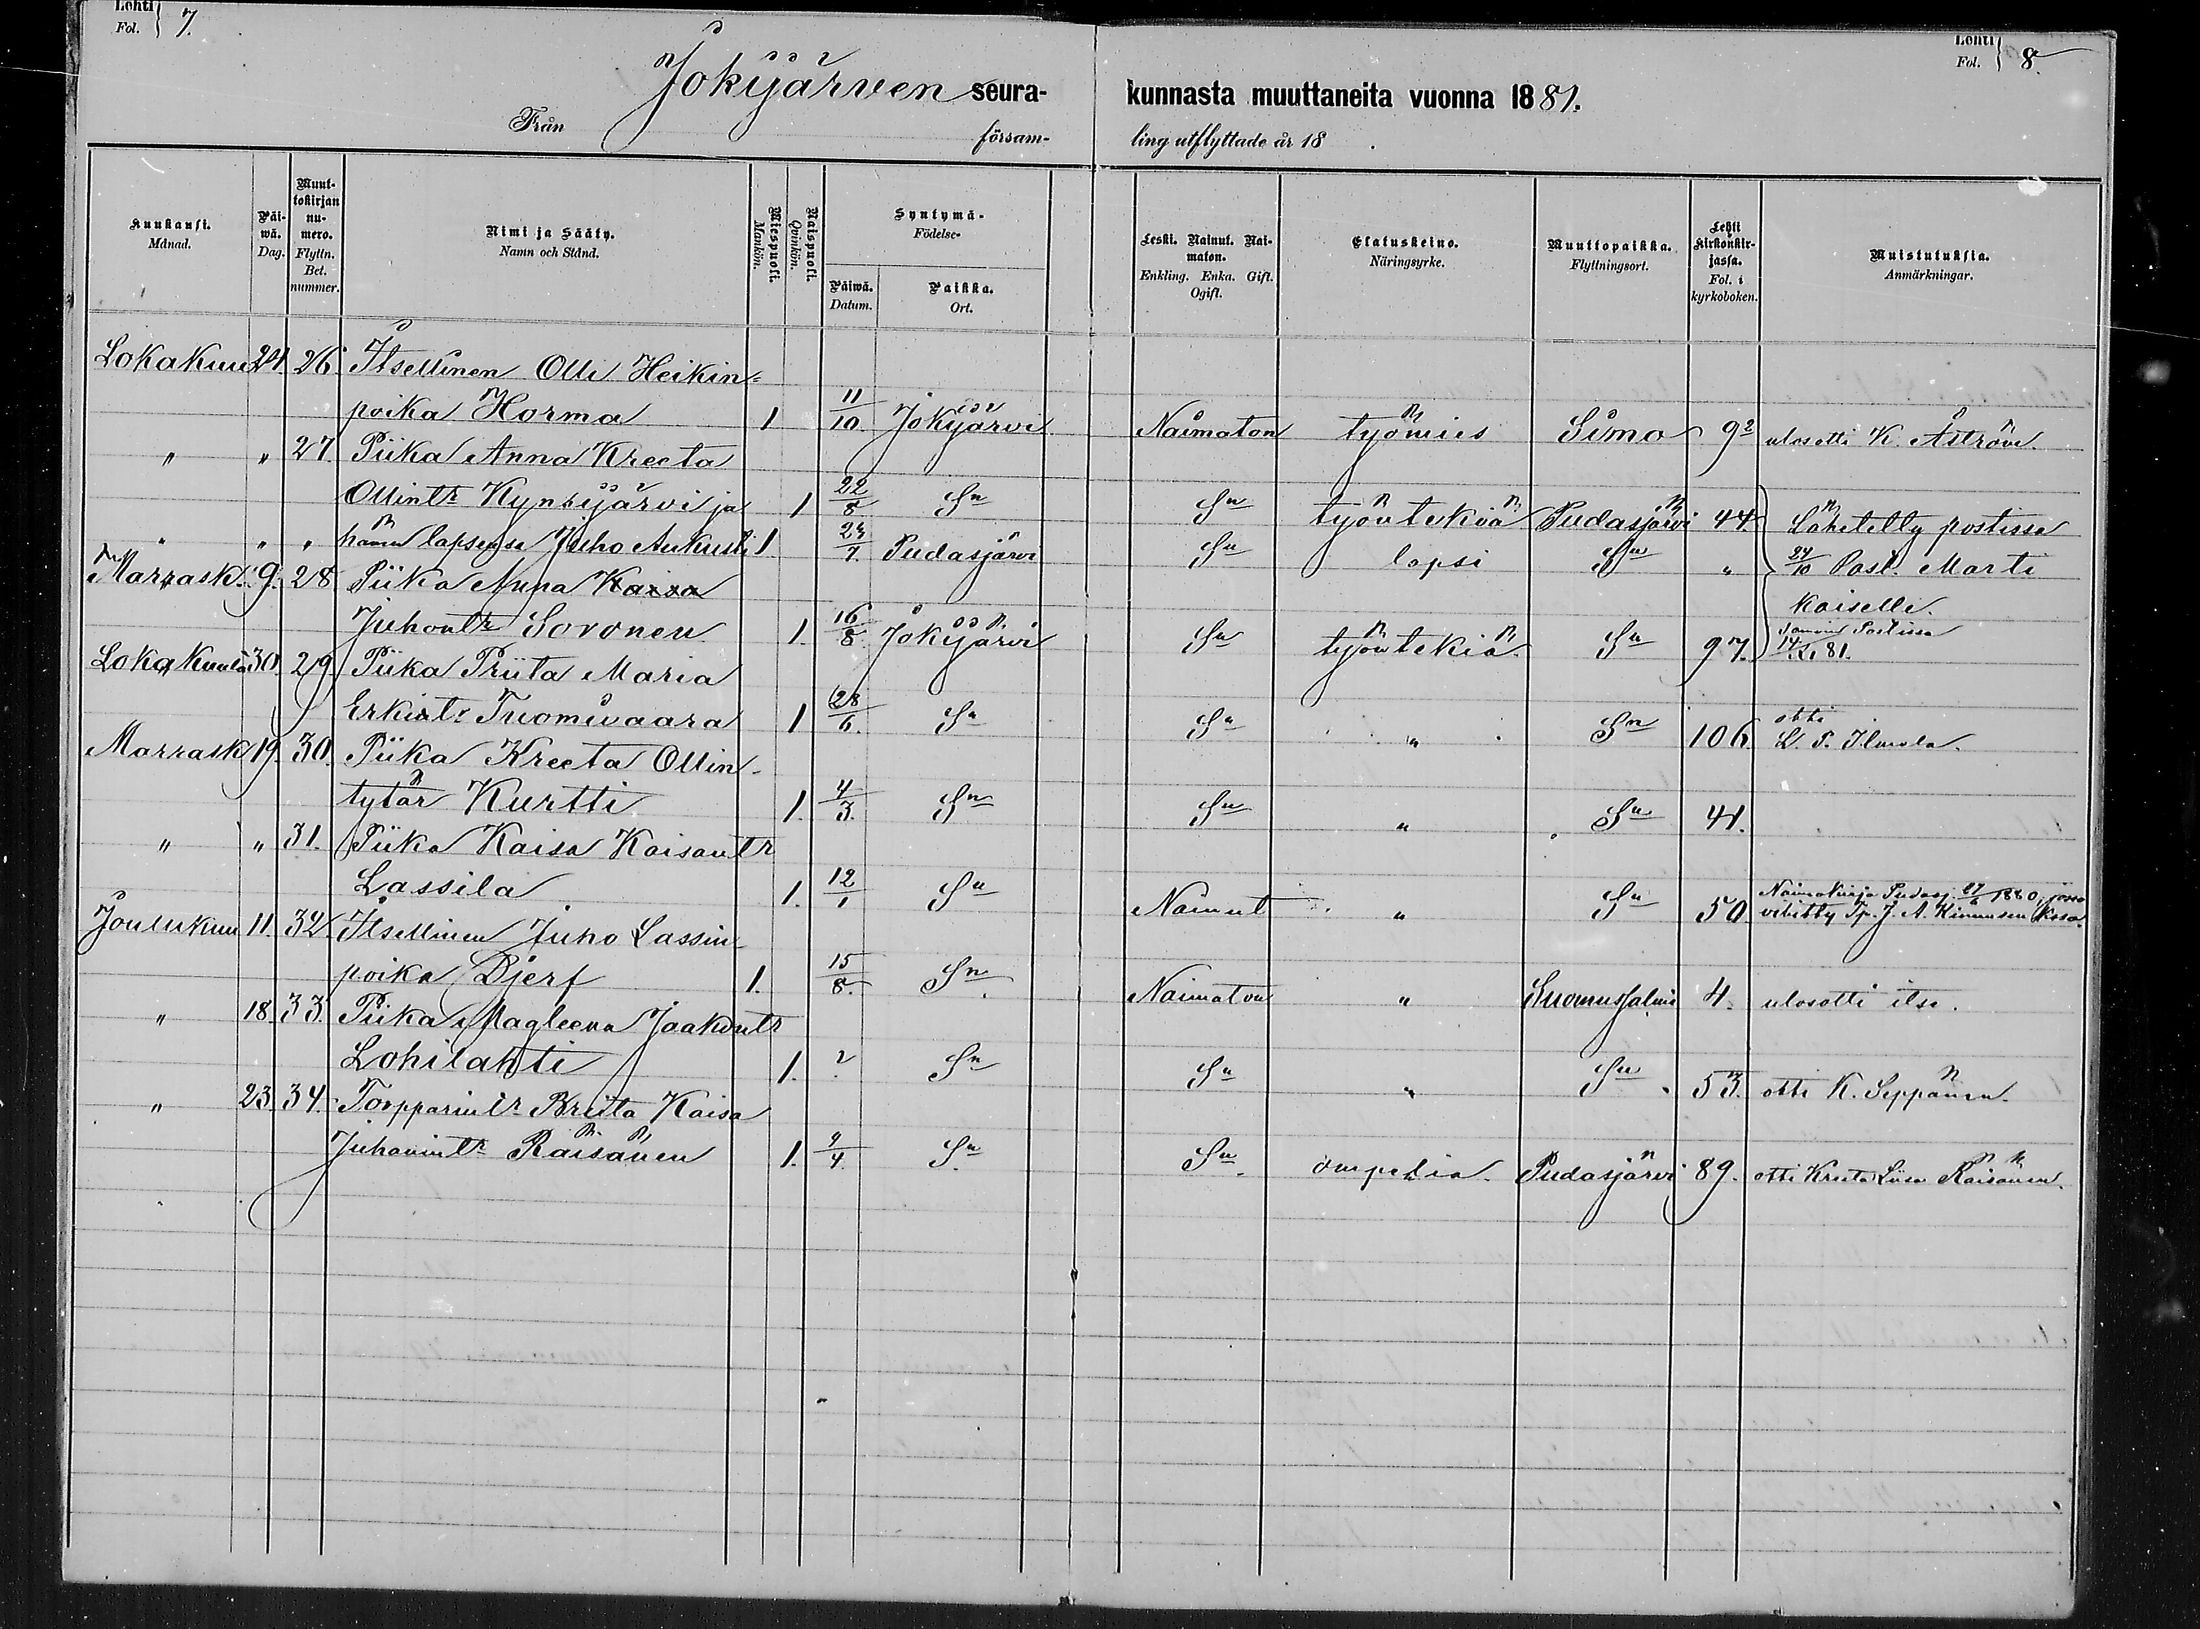 Lehti Fol. 7.
Lehti Fol. 8.
Jokijärven seurakunnasta muuttaneita vuonna 1881.
Från församling utflyttade år 18 .
Kuukausi. Månad.
Päiwä. Dag.
Muuttokirjan numero. Flyttn. Bet. nummer.
Nimi ja Sääty. Namn och Stånd.
Miespuoli. Mankön.
Naispuoli. Qvinkön.
Syntymä- Födelse-
Päiwä. Datum.
Paikka. Ort.
Leski. Nainut. Naimaton. Enkling. Enka. Gift. Ogift.
Elatuskeino. Näringsyrke.
Muuttopaikka. Flyttningsort.
Lehti kirkonkirjassa. Fol. i kyrkoboken.
Muistutuksia. Anmärkningar.
Lokakuu 24. 26. Itsellinen Olli Heikin-
poika Horma 1 11/10. Jokijärvi Naimaton työmies Simo 92 ulosotti K. Åström.
" " 27. Piika Anna Kreeta
Ollintr Kynsijärvi ja 1 22/8 Sn Sn työntekiä Pudasjärvi 44 Lähetetty postissa
" " " hänen lapsensa Juho Aukusti 1. 24/7. Pudasjärvi Sn lapsi Sn " 24/10 Past. Marti
Marrask. 9. 28. Piika Anna Kaisa kaiselle.
Juhontr Soronen 1. 16/8. Jokijärvi Sn työntekiä. Sn 97. Samoin Postissa 14/XI 81.
Lokakuula 30. 29. Piika Priita Maria
Erkintr Tuomivaara 1 28/6. Sn Sn " Sn 106 otti L. P. Ilvesla.
Marrask 19. 30. Piika Kreeta Ollin-
tytär Kurtti 1. 4/3. Sn Sn " Sn 41.
" " 31. Piika Kaisa Kaisantr
Lassila 1. 12/1 Sn Nainut " Sn 50. Naimakirja Pudasj. 27/6 1880, jossa vihitty Tp. J. A. Kinnusen kssa.
Joulukuu 11. 32. Itsellinen Juho Lassin
poika Djerf 1. 15/8. Sn Naimaton " Suomussalmi 4. ulosotti itse.
" 18. 33. Piika Magleena Jaakontr
Lohilahti 1. ? Sn Sn " Sn 53. otti K. Seppänen.
" 23. 34. Torpparintr Briita Kaisa
Juhanintr Räisänen 1. 9/4. Sn Sn ompelia. Pudasjärvi 89. otti Kreeta Liisa Räisänen.